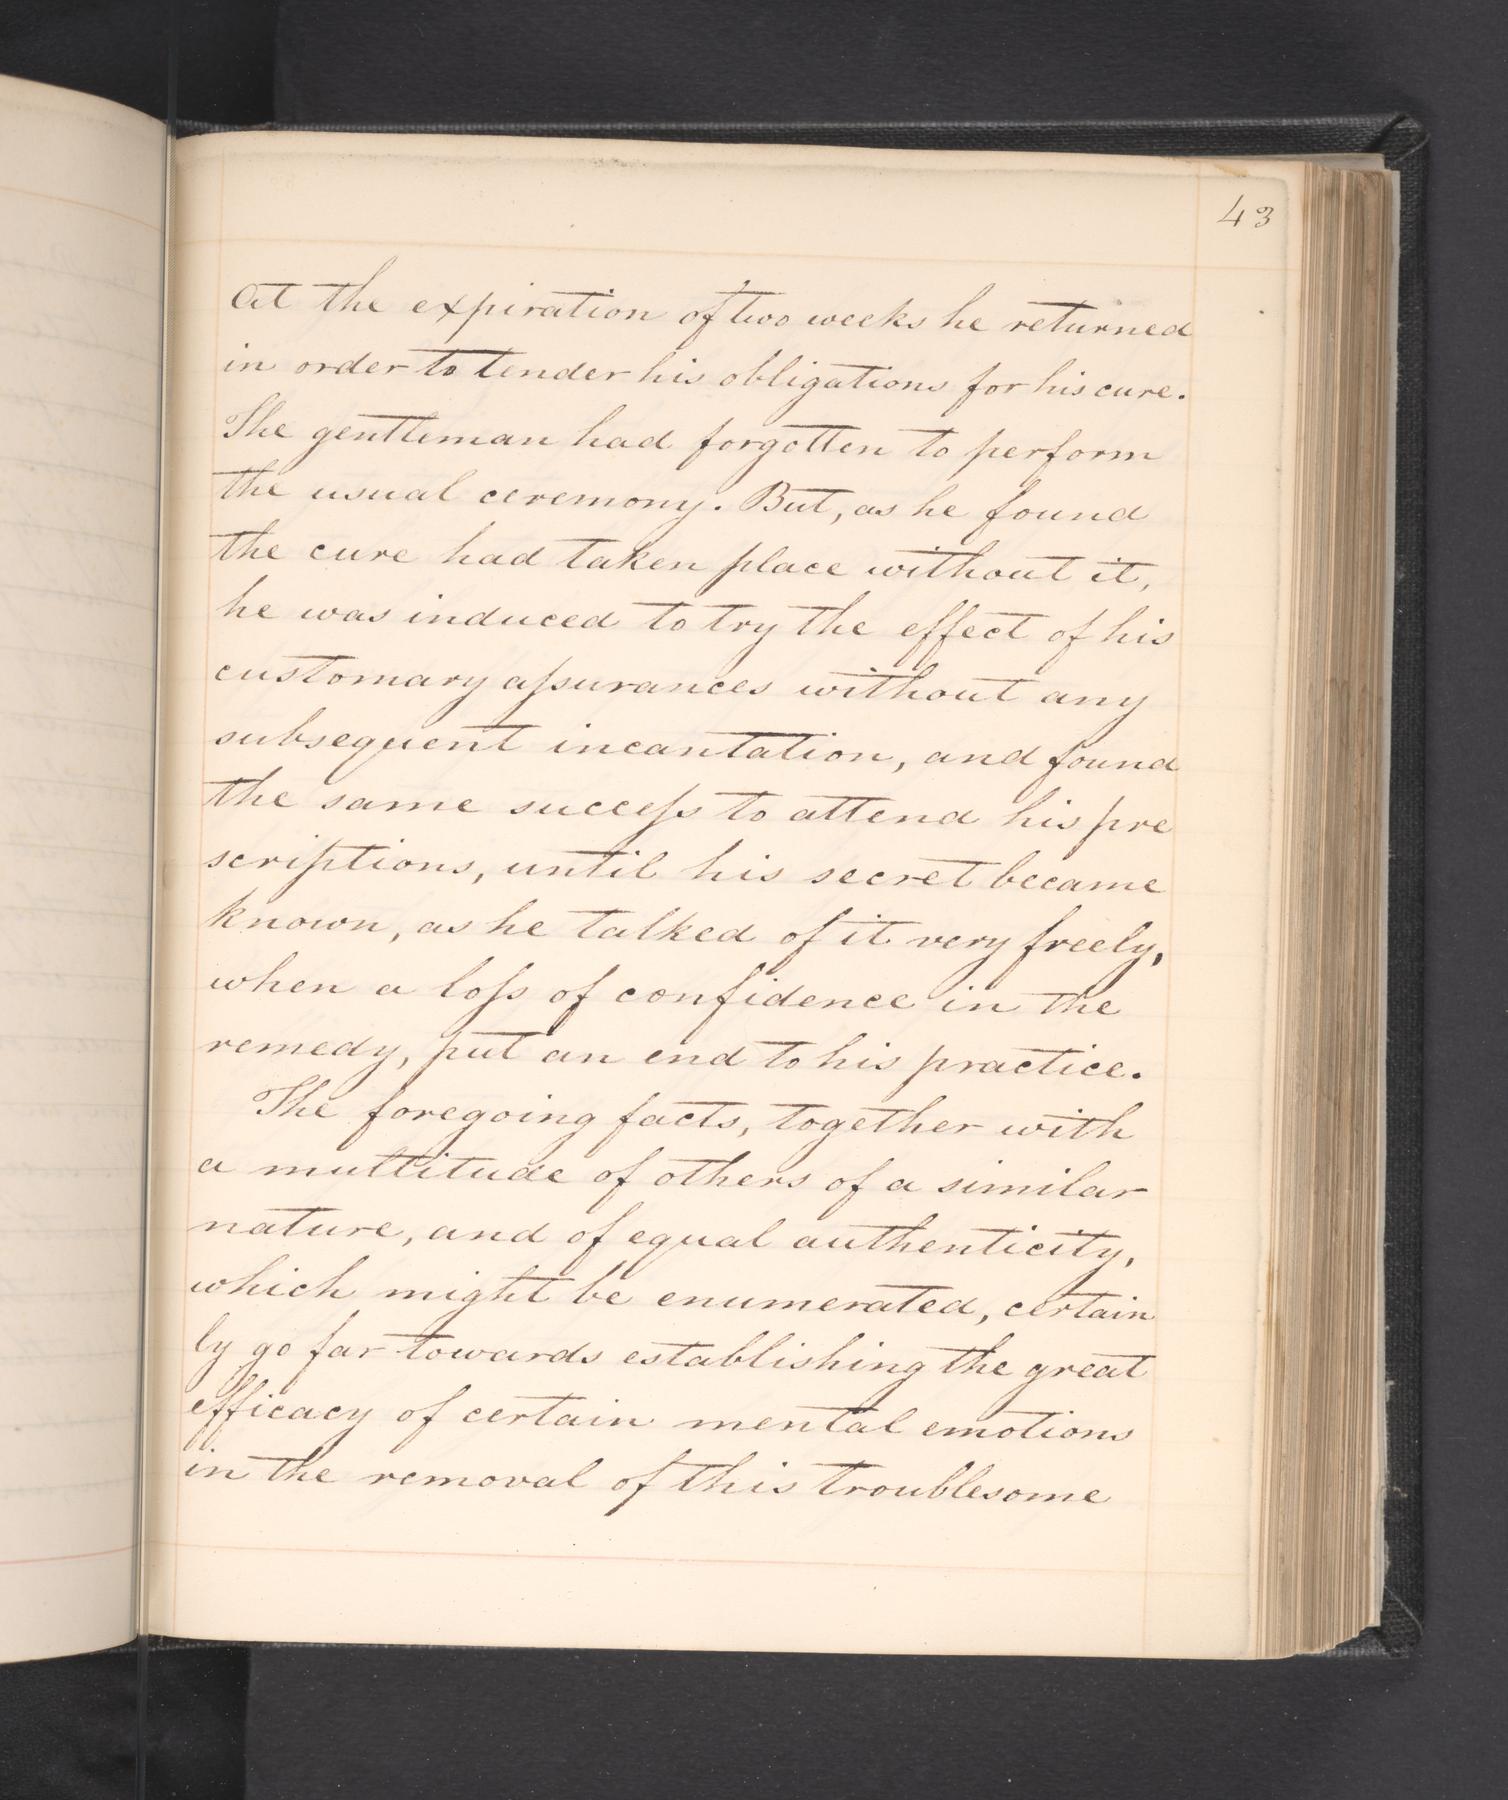 43
At the expiration of two weeks he returned
in order to tender his obligations for his cure.
The gentleman had forgotten to perform
the usual ceremony. But, as he found
the cure had taken place without it,
he was induced to try the effect of his
customary aſsurances without any
subsequent incantation, and found
the same succeſs to attend his pre
scriptions, until his secret became
known, as he talked of it very freely,
when a loſs of confidence in the
remedy, put an end to his practice.
The foregoing facts, together with
a multitude of others of a similar
nature, and of equal authenticity,
which might be enumerated, certain
ly go far towards establishing the great
efficacy of certain mental emotions
in the removal of this troublesome